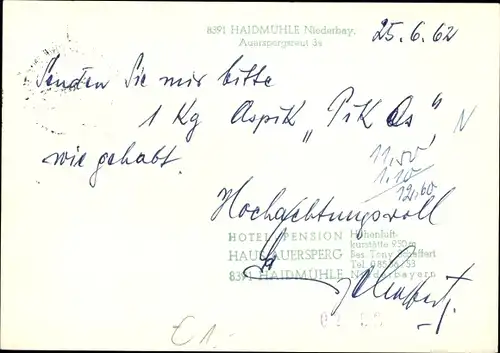 8391 HAIDMÜHLE Niederbay.
Auerspergsreut
25.6.62
Senden Sie mir bitte
1 Kg Aspik „Pik As"
wie gehabt.
11,50
1.10
12,60
Hochachtungsvoll
HOTEL PENSION Höhenluft-
kurstätte 950m
HAUS AUERSPERG Bes. Tony Scheffert
Tel.
8391 HAIDMÜHLE Niederbayern
€ 1.-